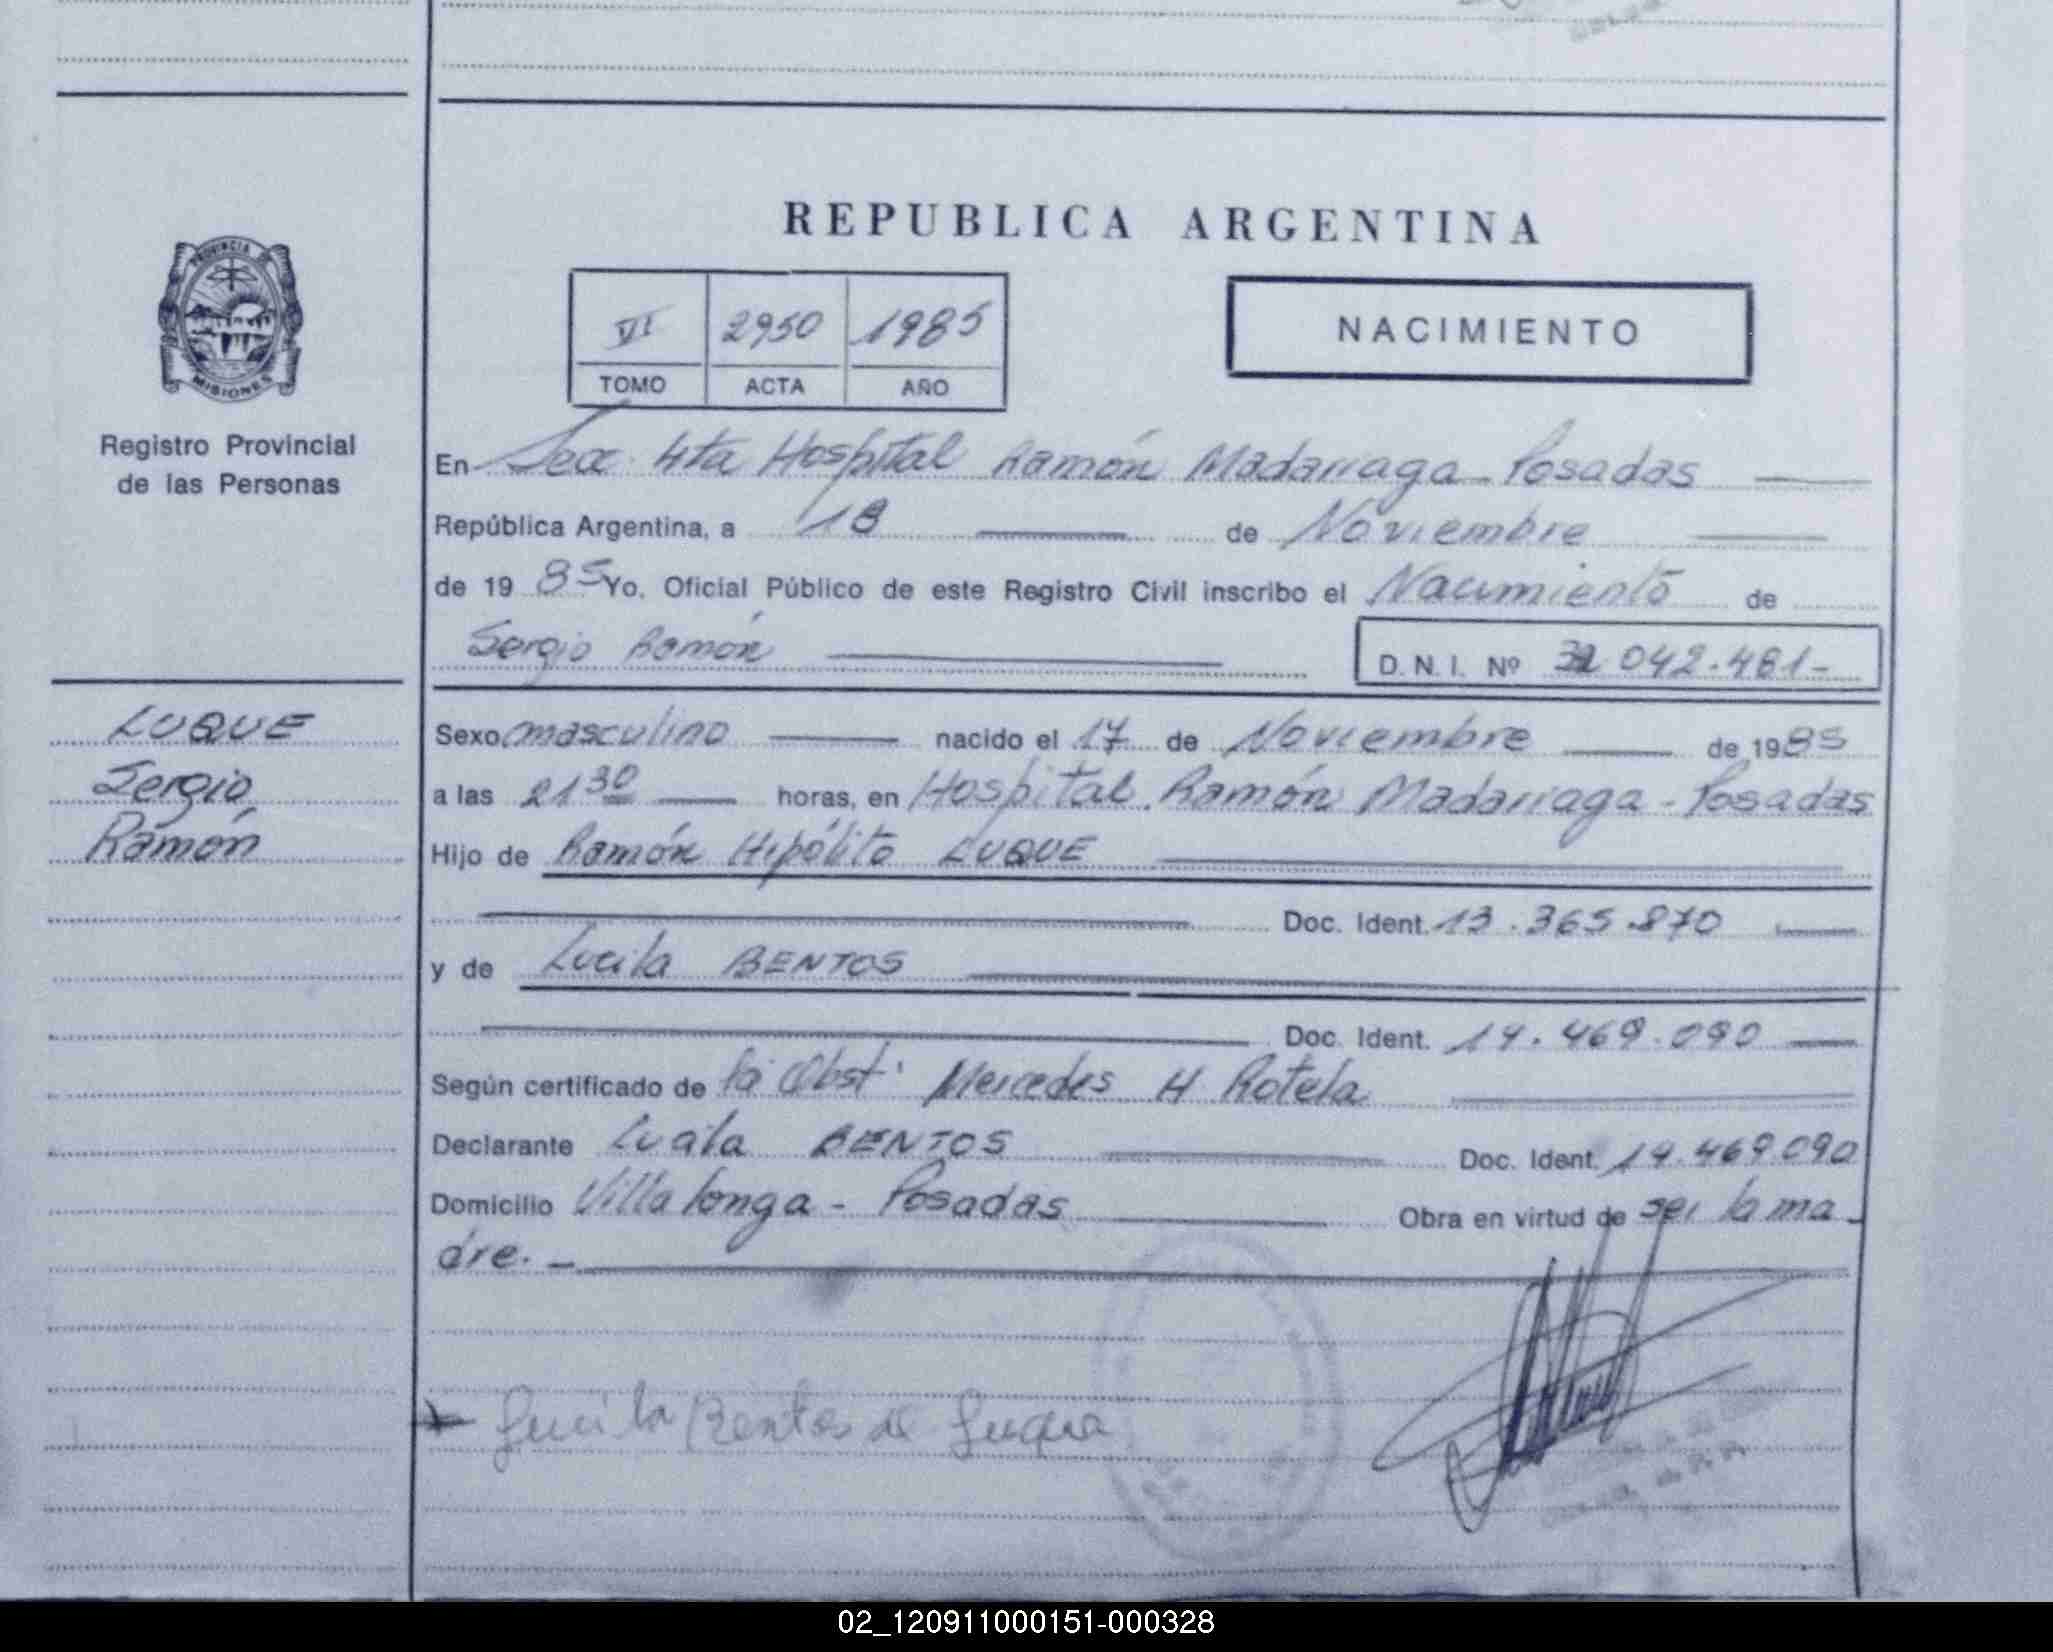 REPUBLICA ARGENTINA
PROVINCIA DE
MISIONES
Registro Provincial
de las Personas
VI 2950 1985
TOMO ACTA AÑO
NACIMIENTO
En Secc. 4ta Hospital Ramón Madariaga - Posadas
República Argentina, a 18 de Noviembre
de 19 85 Yo, Oficial Público de este Registro Civil inscribo el Nacimiento de
Sergio Ramón D. N. I. Nº 042.461-
LUQUE
Sergio
Ramón
Sexo masculino nacido el 17 de Noviembre de 1985
a las 21 30 horas, en Hospital Ramón Madariaga - Posadas
Hijo de Ramón Hipólito LUQUE
Doc. Ident. 13.365.870
y de Lucila BENTOS
Doc. Ident. 14.469.090
Según certificado de la Obst. Mercedes H Rotela
Declarante Lucila BENTOS Doc. Ident. 14.469.090
Domicilio Villalonga - Posadas Obra en virtud de ser la ma-
dre. -
Lucila Bentos de Luque
02_120911000151-000328